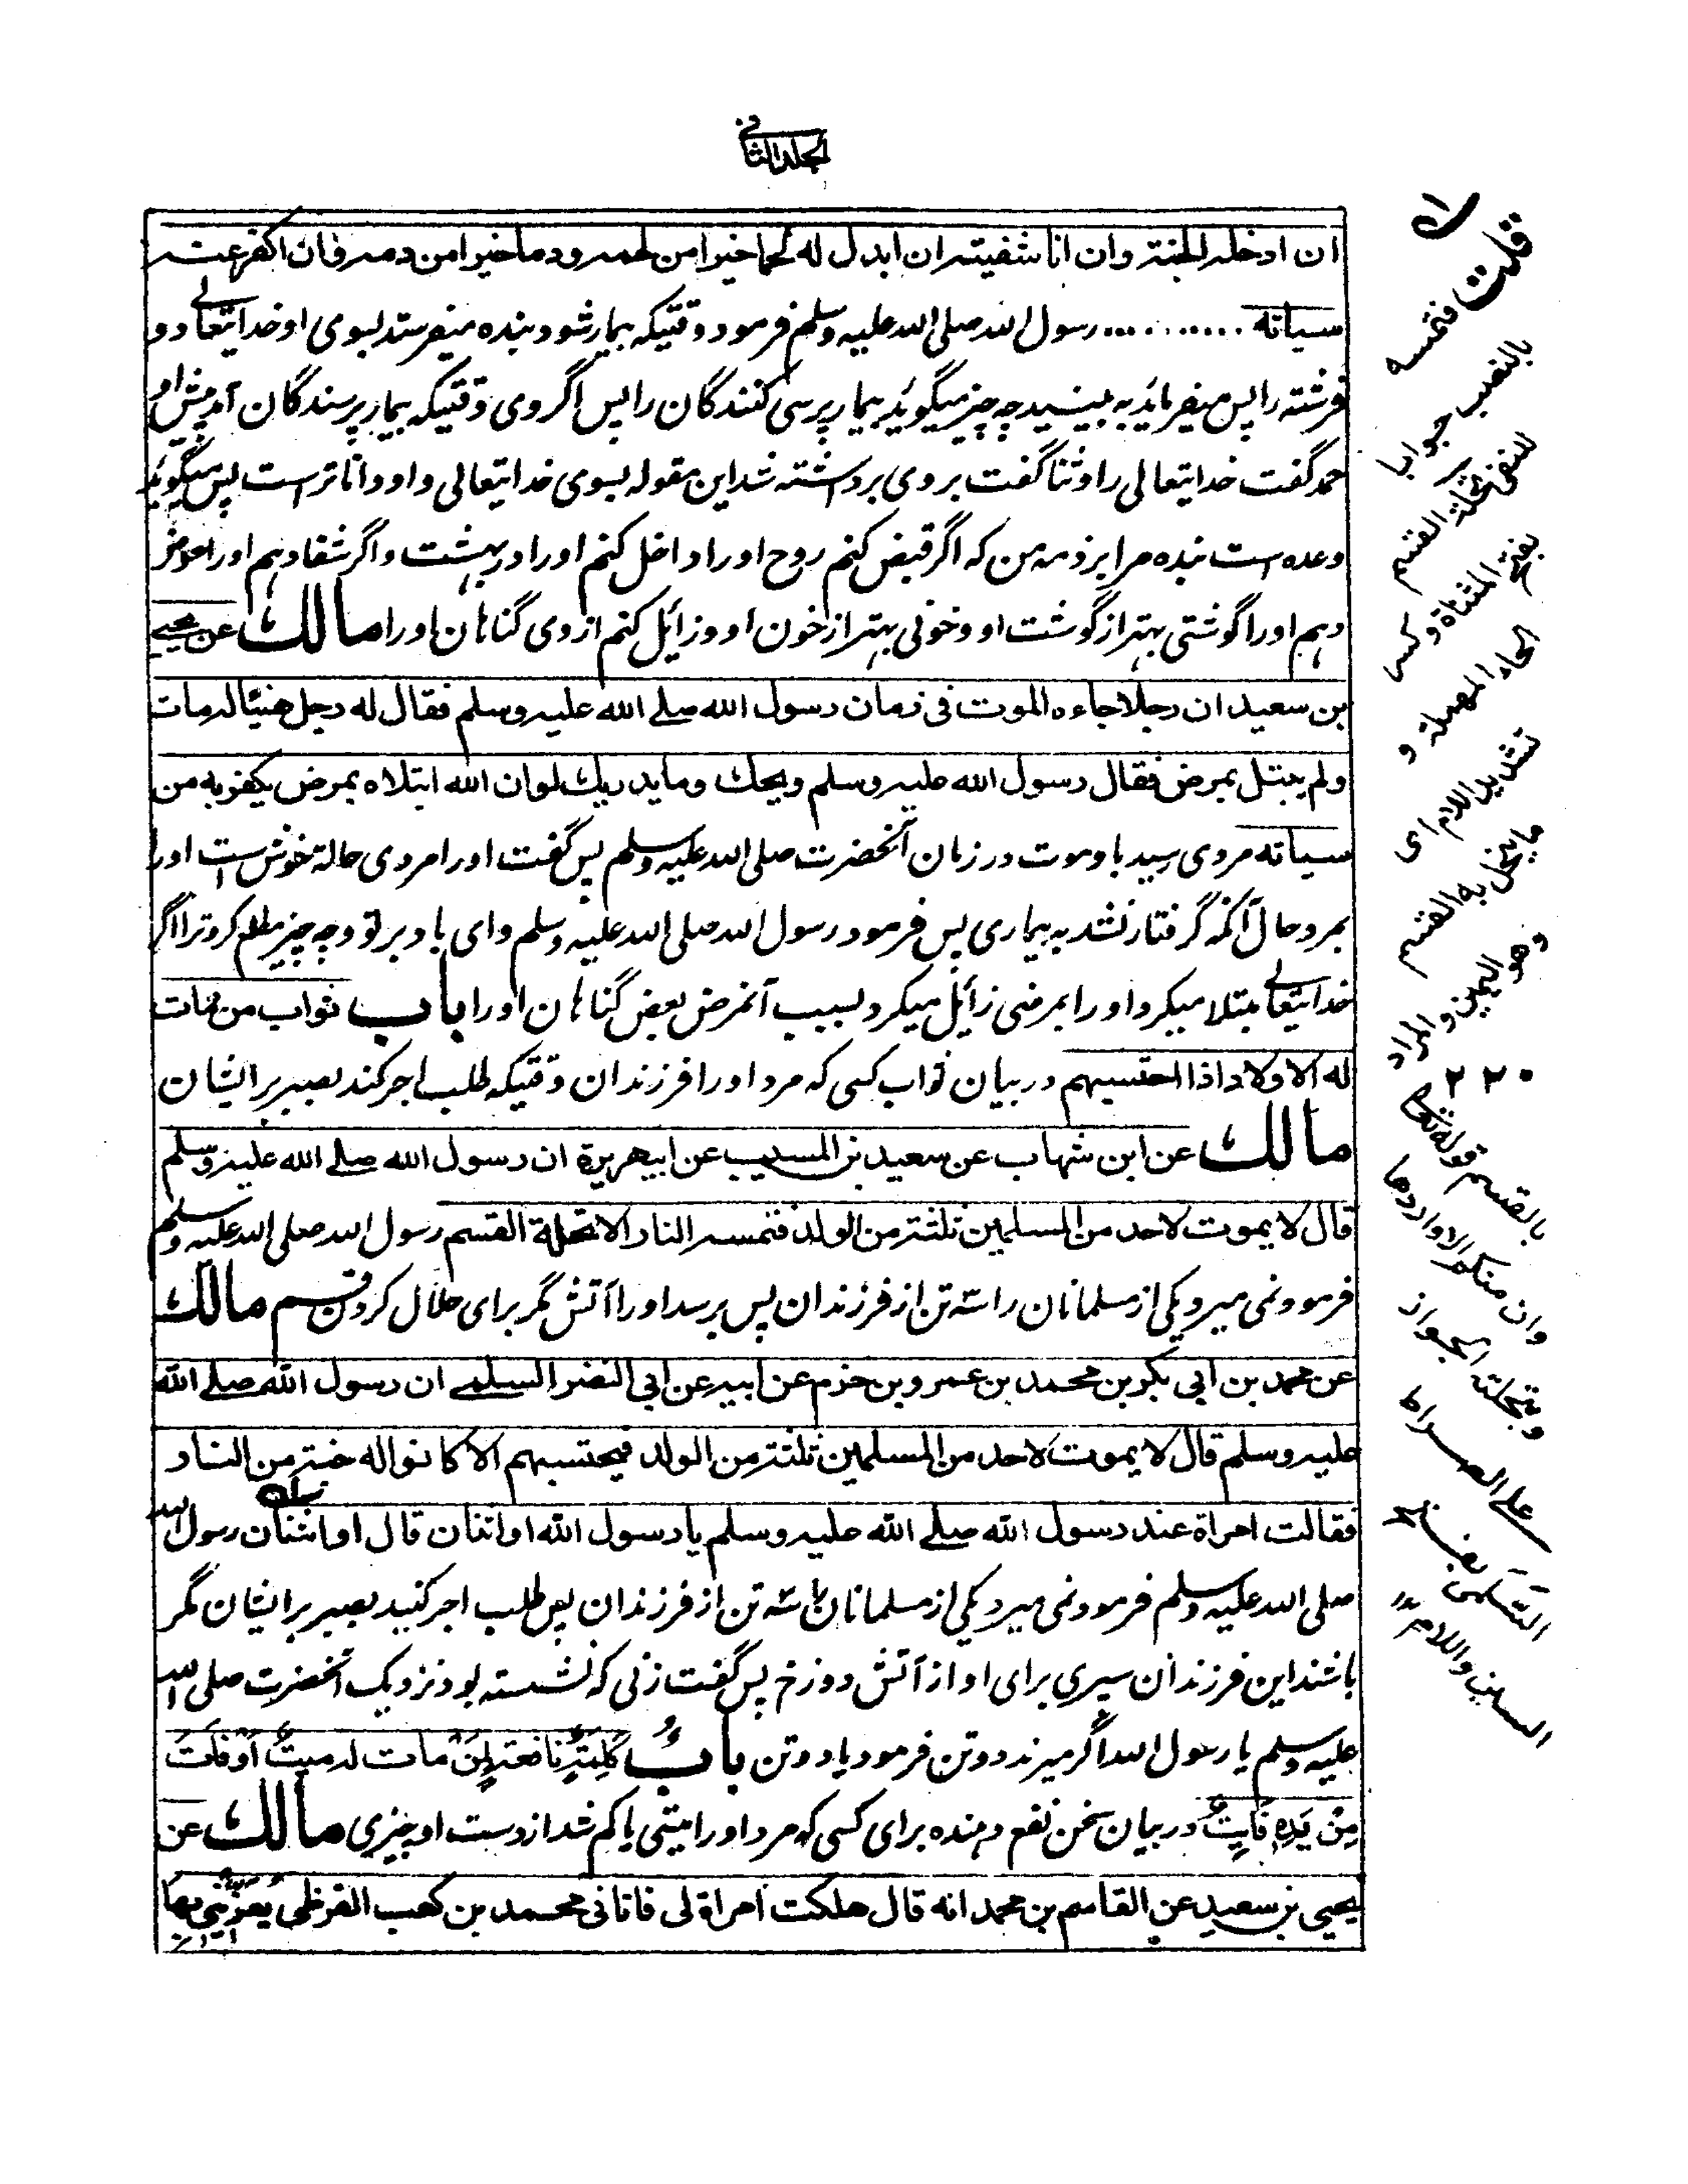 الجلد الثانی
ان ادخله الجنة وان انا شفیته ان ابدل له لحما خیرا من لحمه ودما خیرا من دمه وان اکفر عنه
سیاته .......... رسول الله صلی الله علیه وسلم فرمود وقتیکه بیمار شود بنده میفرستد بسوی او خدایتعالے دو
فرشته را پس میفرماید به بینید چه چیز میگوید بیمار پرسی کنندگان را پس اگر وی وقتیکه بیمار پرسندگان آمد پیش او
حمد گفت خدایتعالی را وثنا گفت بروی برداشته شد این مقوله بسوی خدایتعالی واو داناتر است پس میگوید
وعده است بنده مرا بر ذمه من که اگر قبض کنم روح او را داخل کنم او را در بهشت واگر شفا دهم او را عوض
دهم او را گوشتی بهتر از گوشت او وخونی بهتر از خون او وزائل کنم از وی گناهان او را مالك عن یحیے
بن سعید ان رجلا جاءه الموت فی زمان رسول الله صلے الله علیه وسلم فقال له رجل هنیئا له مات
ولم یبتل بمرض فقال رسول الله علیه وسلم ویحك وما یدریك لو ان الله ابتلاه بمرض یکفر به من
سیاته مردی رسید باو موت در زمان آنحضرت صلی الله علیه وسلم پس گفت او را مردی حالة خوش است او را
بمرد حال آنکه گرفتار نشد به بیماری پس فرمود رسول الله صلی الله علیه وسلم وای باد بر تو وچه چیز مطلع کرد ترا اگر
خدایتعالے مبتلا میکرد او را بمرضی زائل میکرد بسبب آنمرض بعض گناهان او را باب ثواب من مات
له الاولاد اذا احتسبهم در بیان ثواب کسی که مرد او را فرزندان وقتیکه طلب اجر کند بصبر بر ایشان
مالك عن ابن شهاب عن سعید بن المسیب عن ابیهریرة ان رسول الله صلے الله علیه وسلم
قال لا یموت لاحد من المسلمین ثلثة من الولد فتمسه النار الا تحلة القسم رسول الله صلی الله علیه وسلم
فرمود نمی میرد یکی از مسلمانان را سه تن از فرزندان پس برسد او را آتش مگر برای حلال کردن قسم مالك
عن محمد بن ابی بکر بن محمد بن عمرو بن حزم عن ابیه عن ابی النضر السلمے ان رسول الله صلے الله
علیه وسلم قال لا یموت لاحد من المسلمین ثلثة من الولد فیحتسبهم الا کانوا له جنة من النار
فقالت امراة عند رسول الله صلے الله علیه وسلم یا رسول الله او اثنان قال او اثنان رسول الله
صلی الله علیه وسلم فرمود نمی میرد یکی از مسلمانان را سه تن از فرزندان پس طلب اجر کنید بصبر بر ایشان مگر
باشند این فرزندان سپری برای او از آتش دوزخ پس گفت زنی که نشسته بود نزدیک آنحضرت صلی الله
علیه وسلم یا رسول الله اگر میرند دو تن فرمود یا دو تن باب کلمة نافعة لمن مات له میت او فات
من یده فایت در بیان سخن نفع دهنده برای کسی که مرد او را میتی یا کم شد از دست او چیزی مالك عن
یحیی بن سعید عن القاسم بن محمد انه قال هلکت امراة لی فاتانی محمد بن کعب القرظی یعزینی بها
قلت فتمسه
بالنصب جوابا
للنفی تحلة القسم
بفتح المثناة وکسر
الحاء المهملة و
تشدید اللام ای
ما ینحل به القسم
وهو الیمین والمراد
۲۲۰
بالقسم قوله تعالی
وان منکم الا واردها
وتحلته الجواز
علے الصراط